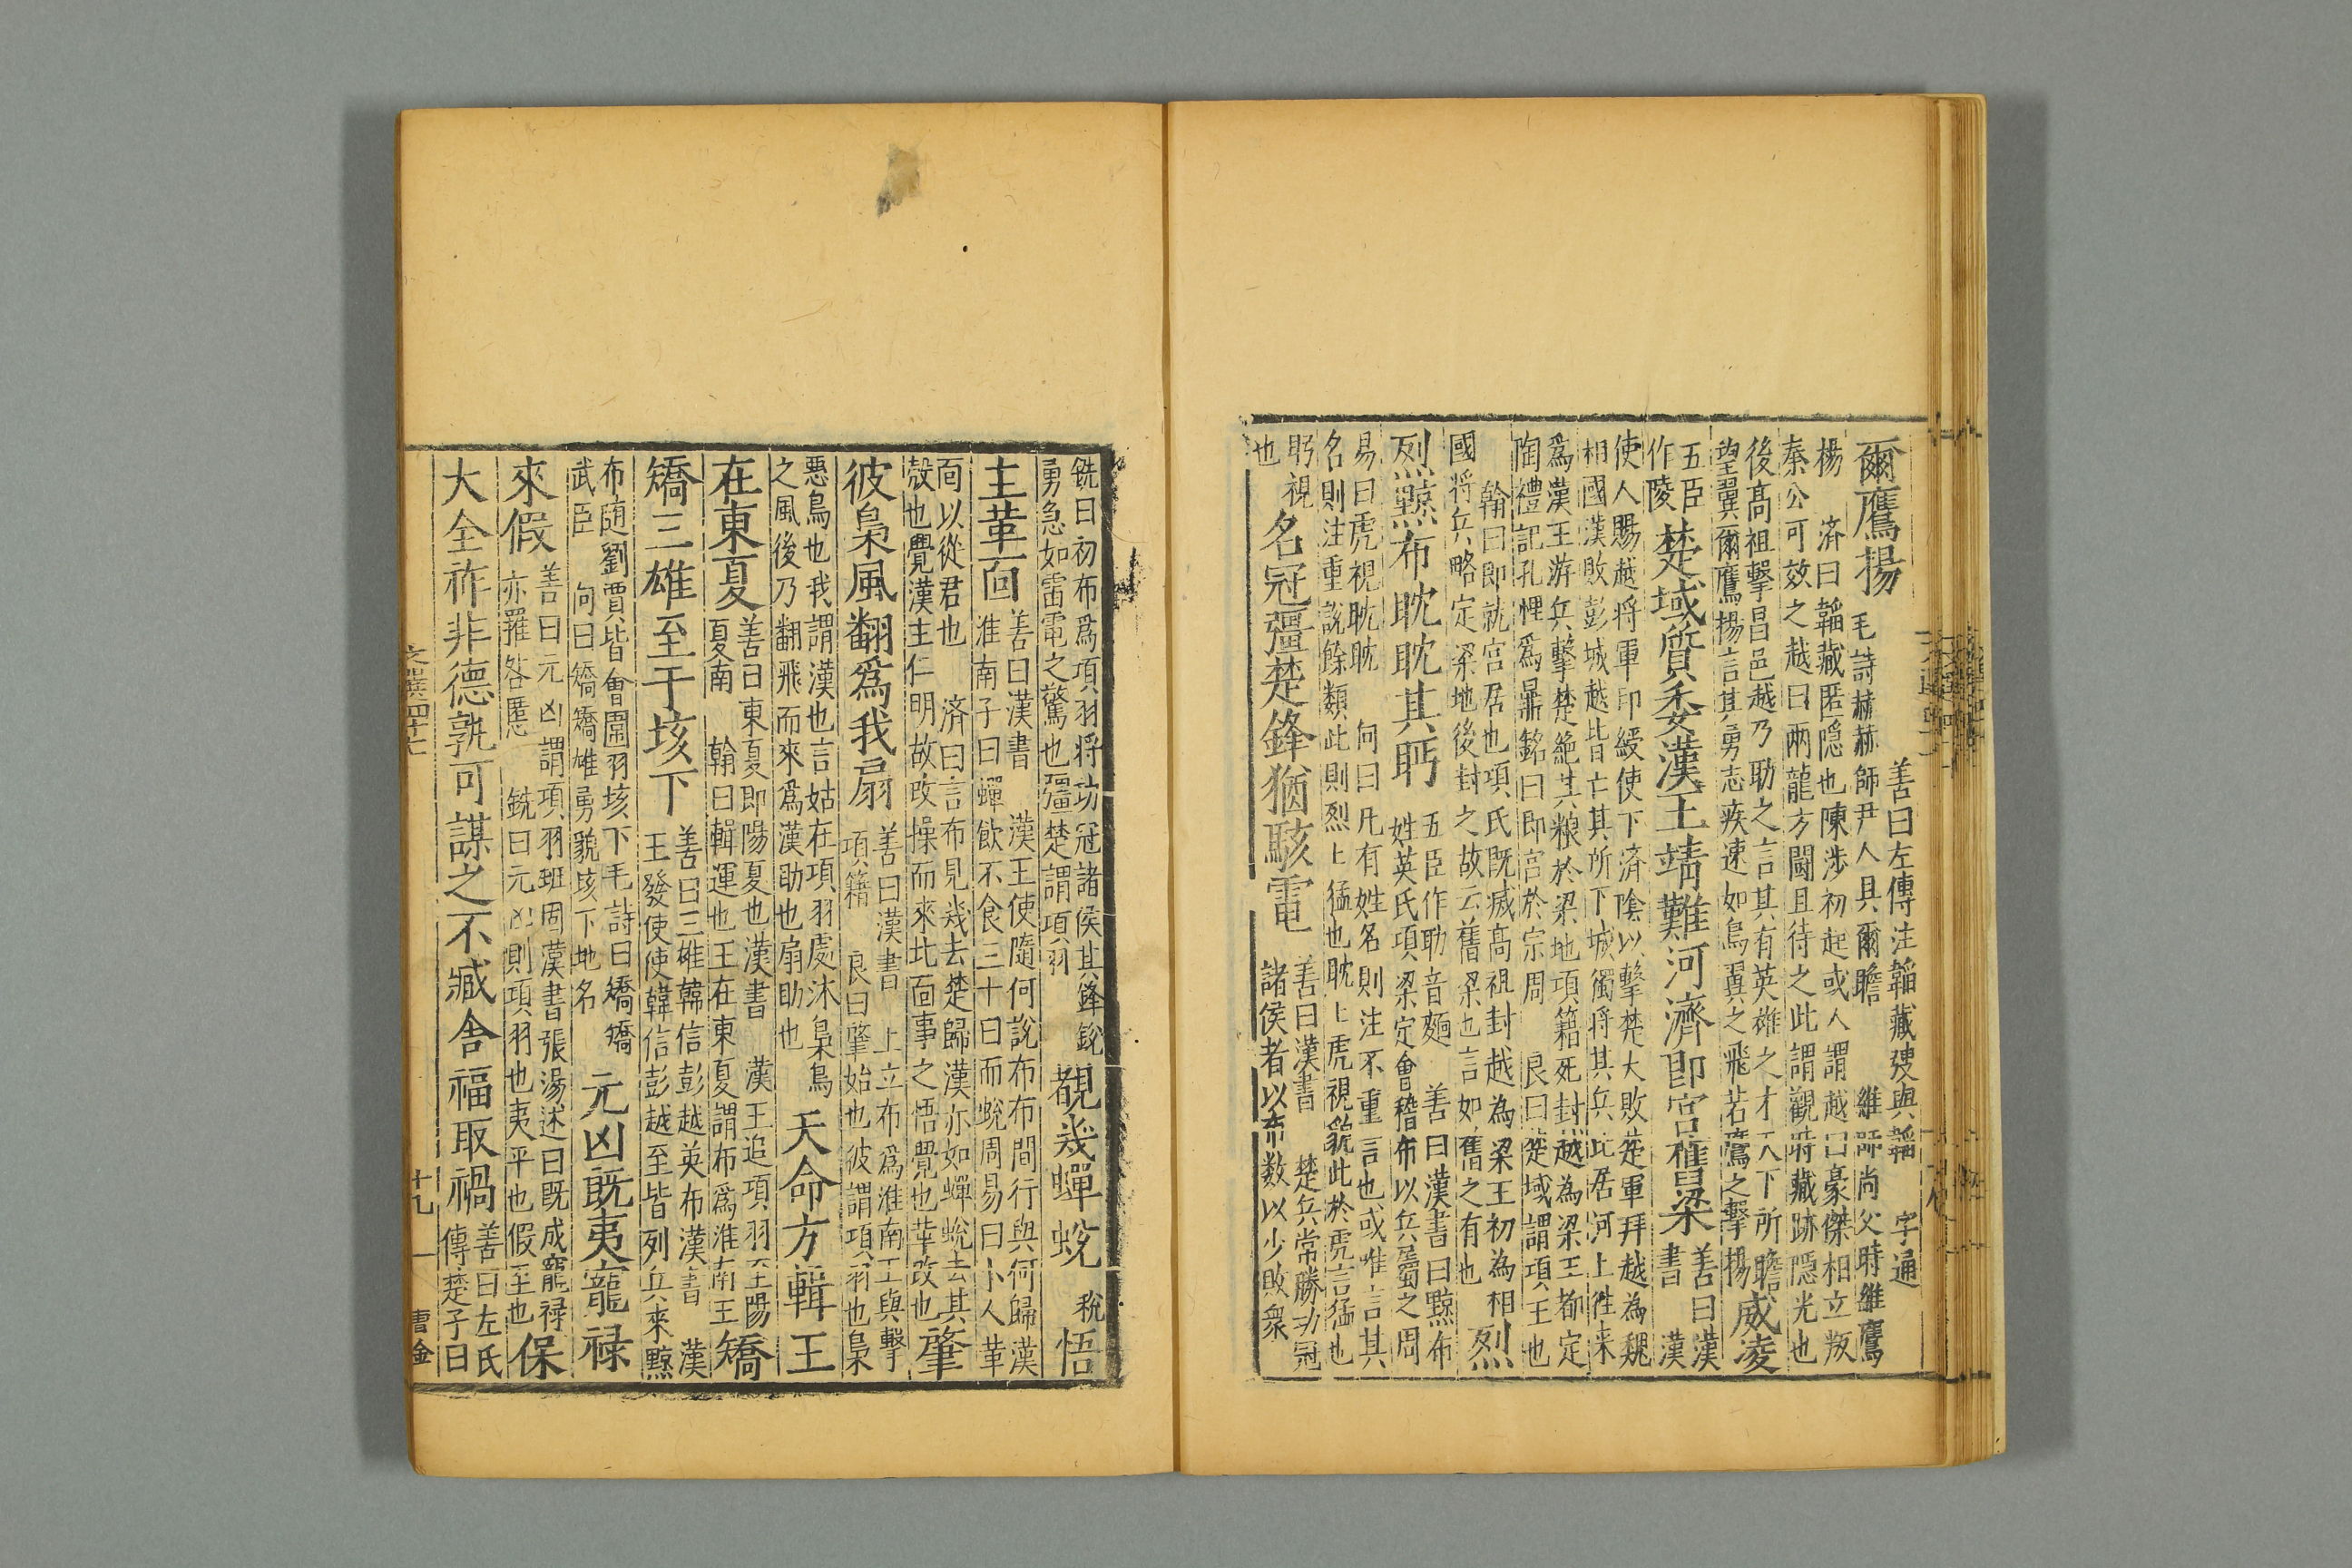 爾鷹揚
善曰左傳注韜藏與韜 字通
毛詩赫赫師尹人具爾瞻 維師尚父時維鷹
揚 濟曰韜藏匿隐也陳涉初起或人謂越曰豪傑相立叛
秦公可效之越曰兩龍方鬭且待之此謂觀時藏跡隱光也
後髙祖擊昌邑越乃助之言其有英雄之才天下所瞻
望翼爾鷹揚言其勇志疾速如鳥翼之飛若鷹之擊揚
威凌
五臣
作陵
楚域質委漢王靖難河濟即宫舊梁
善曰漢
書 漢
使人賜越将軍印綬使下濟陰以擊楚大敗楚軍拜越為魏
相國漢敗彭城越皆亡其所下城獨將其兵北居河上徃来
爲漢王游兵擊楚絶其粮於梁地項籍死封越為梁王都定
陶禮記孔悝爲鼎銘曰即宫於宗周 良曰楚域謂項王也
翰曰即就宫居也項氏既滅髙祖封越為梁王初為相
國将兵略定梁地後封之故云舊梁也言如舊之有也
烈
烈黥布眈眈其眄
五臣作助音麵 善曰漢書曰黥布
姓英氏項梁定會稽布以兵屬之周
易曰虎視眈眈 向曰凡有姓名則注不重言也或唯言其
名則注重說餘類此則烈上猛也眈上虎視貌此於虎言猛也
眄視
也
名冠彊楚鋒猶駭電
善曰漢書 楚兵常勝功冠
諸侯者以布数以少敗衆
銑曰初布為項羽将功冠諸侯其鋒銳
勇急如雷電之驚也彊楚謂項羽
覩幾蟬蛻
稅
悟
主革面
善曰漢書 漢王使隨何說布布間行與何歸漢
淮南子曰蟬飲不食三十日而蛻周易曰小人革
面以從君也 濟曰言布見幾去楚歸漢亦如蟬蛻去其
殼也覺漢主仁明故改操而來北面事之悟覺也革改也
肇
彼梟風翻爲我扇
善曰漢書 上立布爲淮南王與擊
項籍 良曰肇始也彼謂項羽也梟
惡鳥也我謂漢也言姑在項羽處沐梟鳥
之風後乃翻飛而來爲漢助也扇助也
天命方輯王
在東夏
善曰東夏即陽夏也漢書 漢王追項羽至陽
夏南 翰曰輯運也王在東夏謂布爲淮南王
矯
矯三雄至于垓下
善曰三雄韓信彭越英布漢書 漢
王發使使韓信彭越至皆列兵來黥
布随劉賈皆會圍羽垓下毛詩曰矯矯
武臣 向曰矯矯雄勇貌垓下地名
元凶既夷寵禄
來假
善曰元凶謂項羽班固漢書張湯述曰既成寵禄
亦羅咎慝 銑曰元凶則項羽也夷平也假至也
保
大全祚非德孰可謀之不臧舍福取禍
善曰左氏
傳楚子曰
文選四十七
十九
曹金